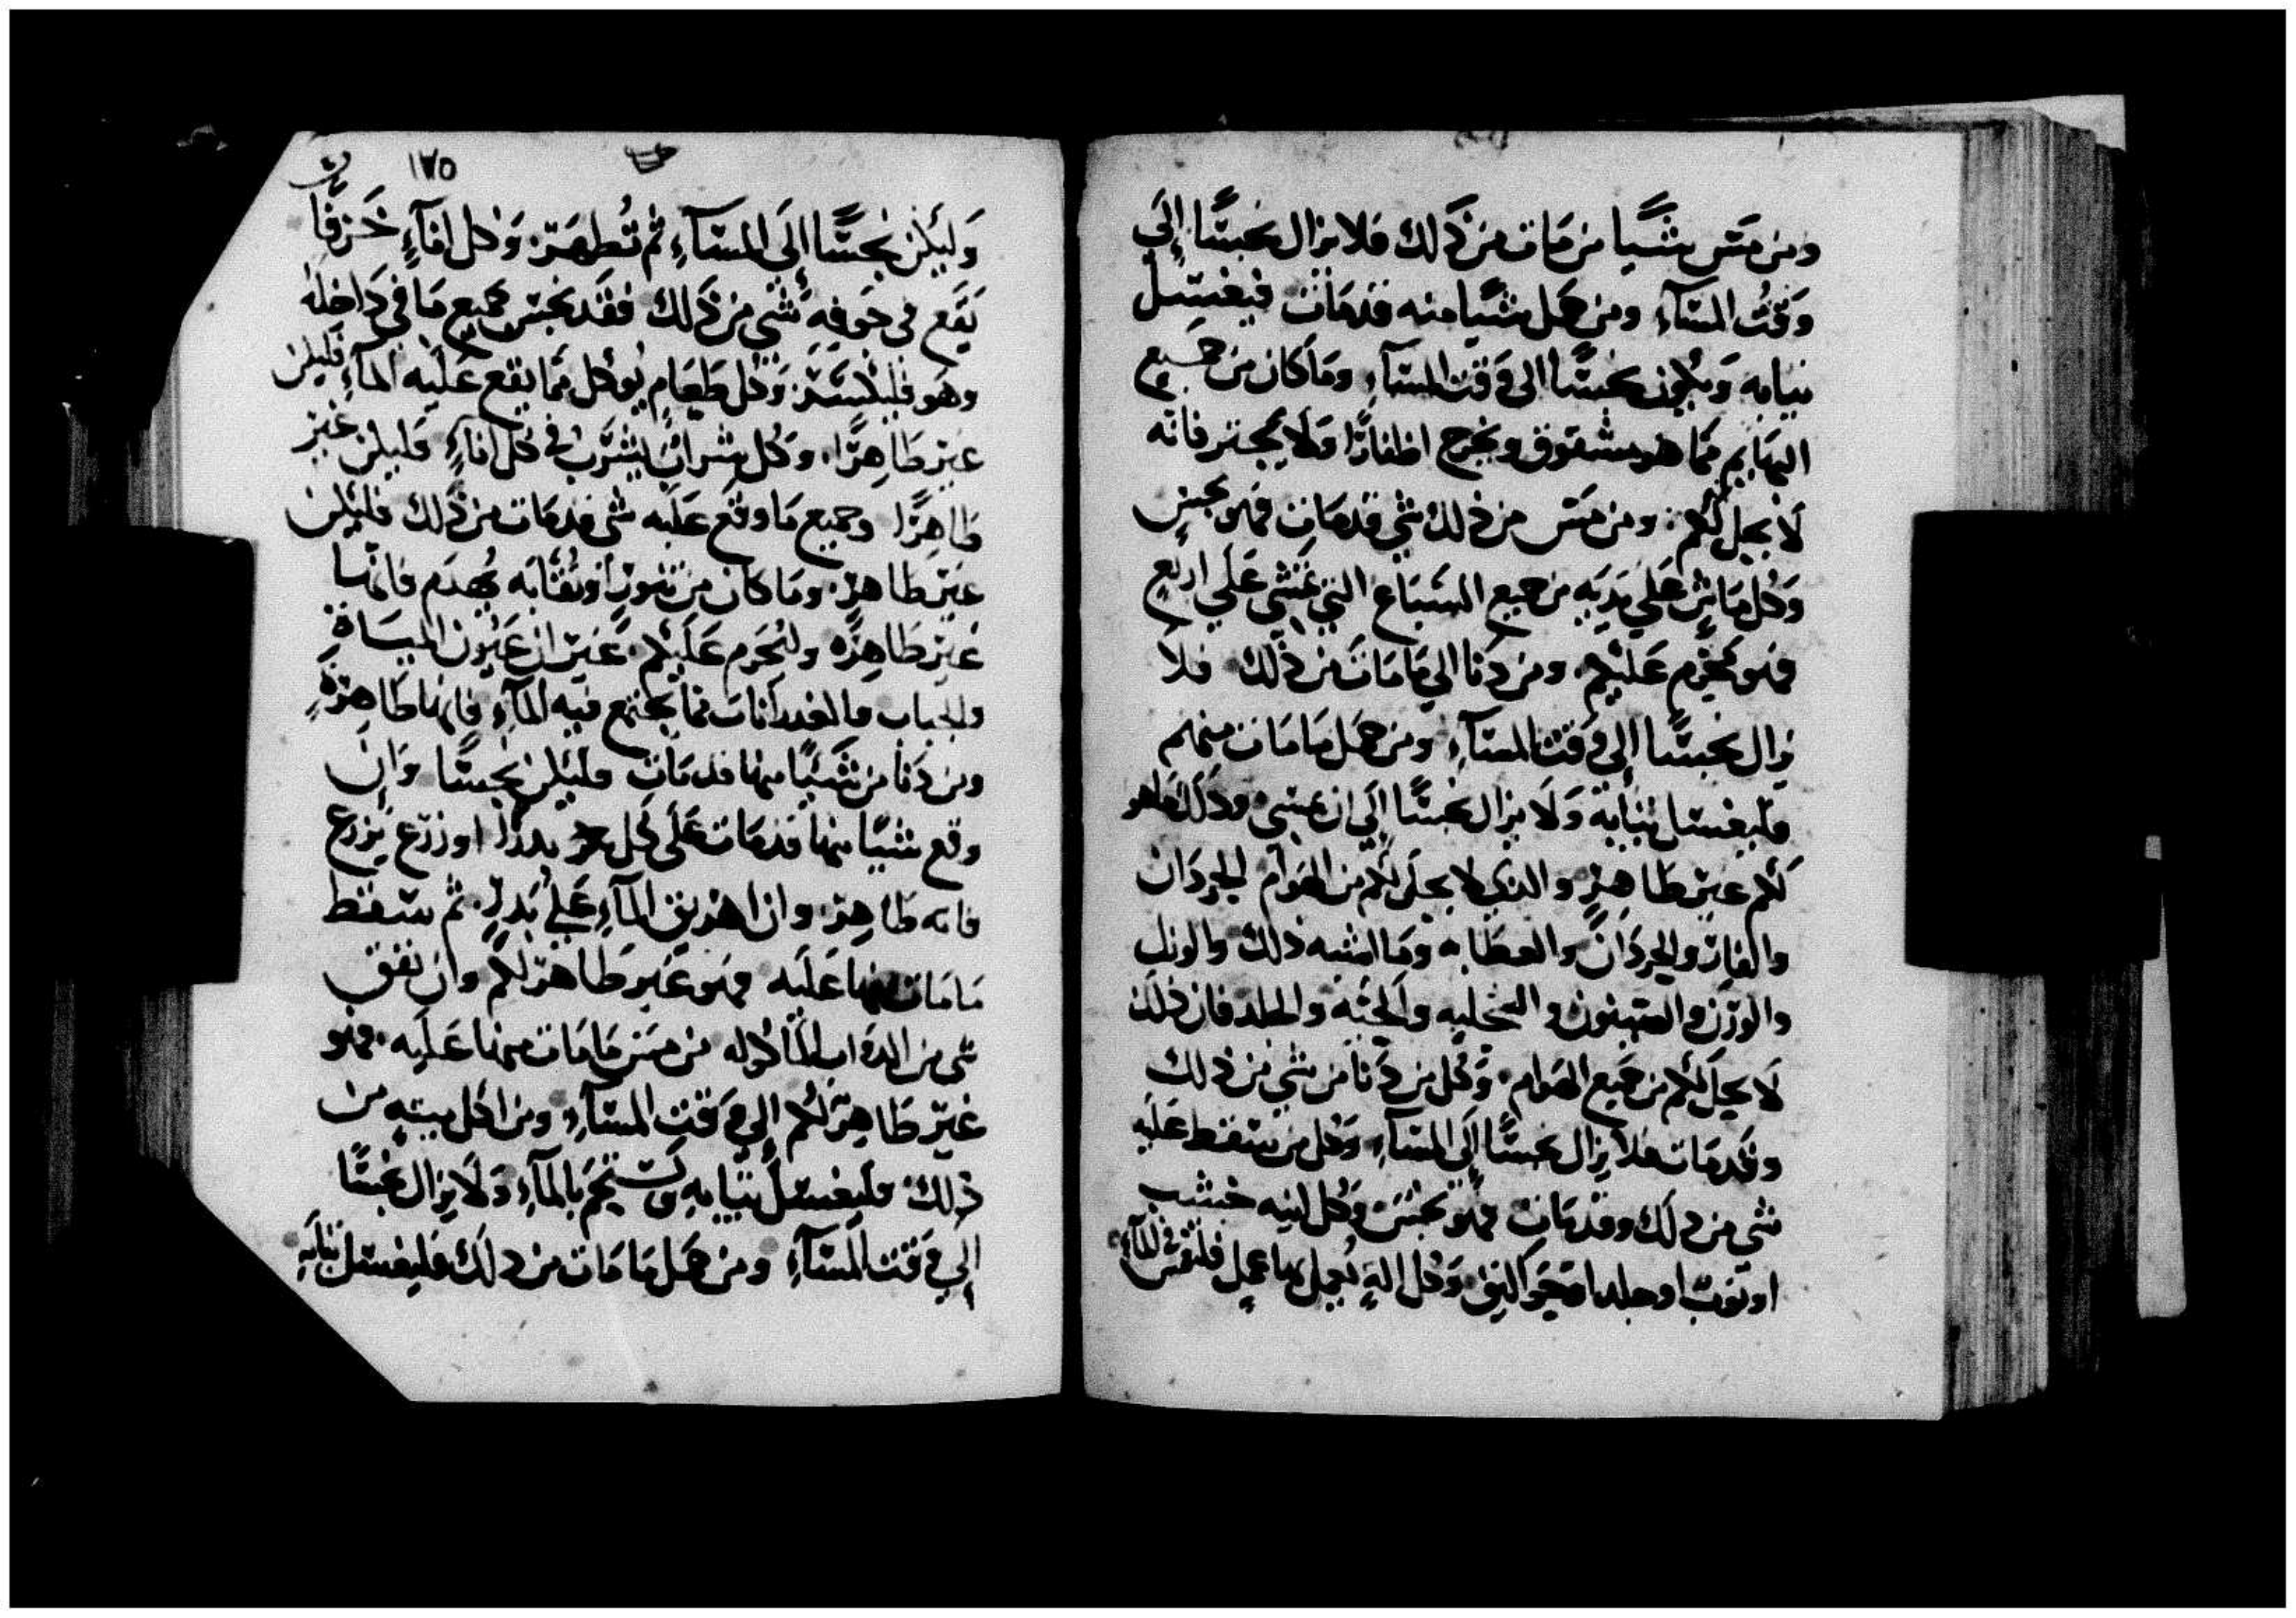 ومن مَس شيًا من مَات من ذَلك فلا يزال نجسًا إلَي
وَقتُ المسَآءِ ومن حمل شيًا منه قدمَات فيغسل
ثيابه وَيكون نجسًا الى وَقت المسَآءِ ومَا كان من جميع
البهَايم ممَا هو مشقوق ويخرج اظفارًا وَلا يجتر فانه
لا يحل لكم ومن مَس من ذلك شي قدمَات فهو نجسٍ
وَكل مَاشٍ عَلي يدَيه من جميع السبَاع التي تمَشي عَلي اربعٍ
فهو مُحرم عَليكم ومن دَنا الي مَامَات من ذلك فلا
يزال نجسًا إلي وَقت المسآءِ ومن حمَل مَا مَات منهم
فليغسل ثيَابه وَلَا يزال نجسًا إلَي ان يمسي وذلك فهو
لكم غير طَاهِرٍ والذي لا يحل لكم من الهوَام الجردَان
والفار والحردَان والعظَايه ومَا اشبه ذلك والورل
والوزن والحية والخلد فان ذلك
لَا يحل لكم من جميع الهوام وَكل من دَنا من شي من ذلك
وقَدمَات فلا يزال نجسًا إلَى المسَآءِ وَكل من سَقط عَليه
شي من ذلك وقدمَات فهو نجسَ وَكل انيه خشب
او ثوب او جلد اوجَوَاليق وَكل الةٍ يُعمل بها عمل فلتقَس في المآءِ
١٧٥
وَليكن نجسًا إلَى المسَآءِ ثم تُطهَر وَكل انآءٍ خَزفًا
يَقَع في جَوفِهِ شَي من ذَلك فقَد نجس جميع مَا في دَاخله
وهَو فليكسَر وَكل طَعَامٍ يُوكل ممَا يقع عَليَه المآءِ فليكن
غير طَاهِرًا وَكل شرابٌ يشرَب في كل انآءٍ فليكن غير
طاهِرًا وجميع مَا وقع عَليَه شي قدمَات من ذَلك فليكن
غير طاهر ومَا كان من تنور او يُهدَم فانها
غير طَاهِرَه ولتحرَم عَليكم غير ان عَيون الميَاةِ
والجباب والغدرانات ممَا يجتمع فيه المآءِ فانها طَاهِرةٍ
ومن دَنا من شَيئًا منها قدمَات فليكن نجسًا وَان
وقع شيًا منها قدمَات عَلى كل بذرًا او زرَع يَزرع
فانه طاهِر وان اهريق المآءِ عَلي بَذرٍ ثم سقط
مَا مَات منها عَليَه فهو غَير طَاهر لكم وان نفق
شي من الدوَاب المَاكوله من مَس مَا مَات منها عَليَه فهو
غير طَاهِر لكم إلي وَقت المسَآءِ ومن اكل ميته من
ذلك فليغسل ثيَابه وَيستحم بالمآءِ وَلَا يزال نجسًا
إلي وَقت المَسَآءِ ومن حمَل مَا مَات من ذلك فليغسل ثيابَه